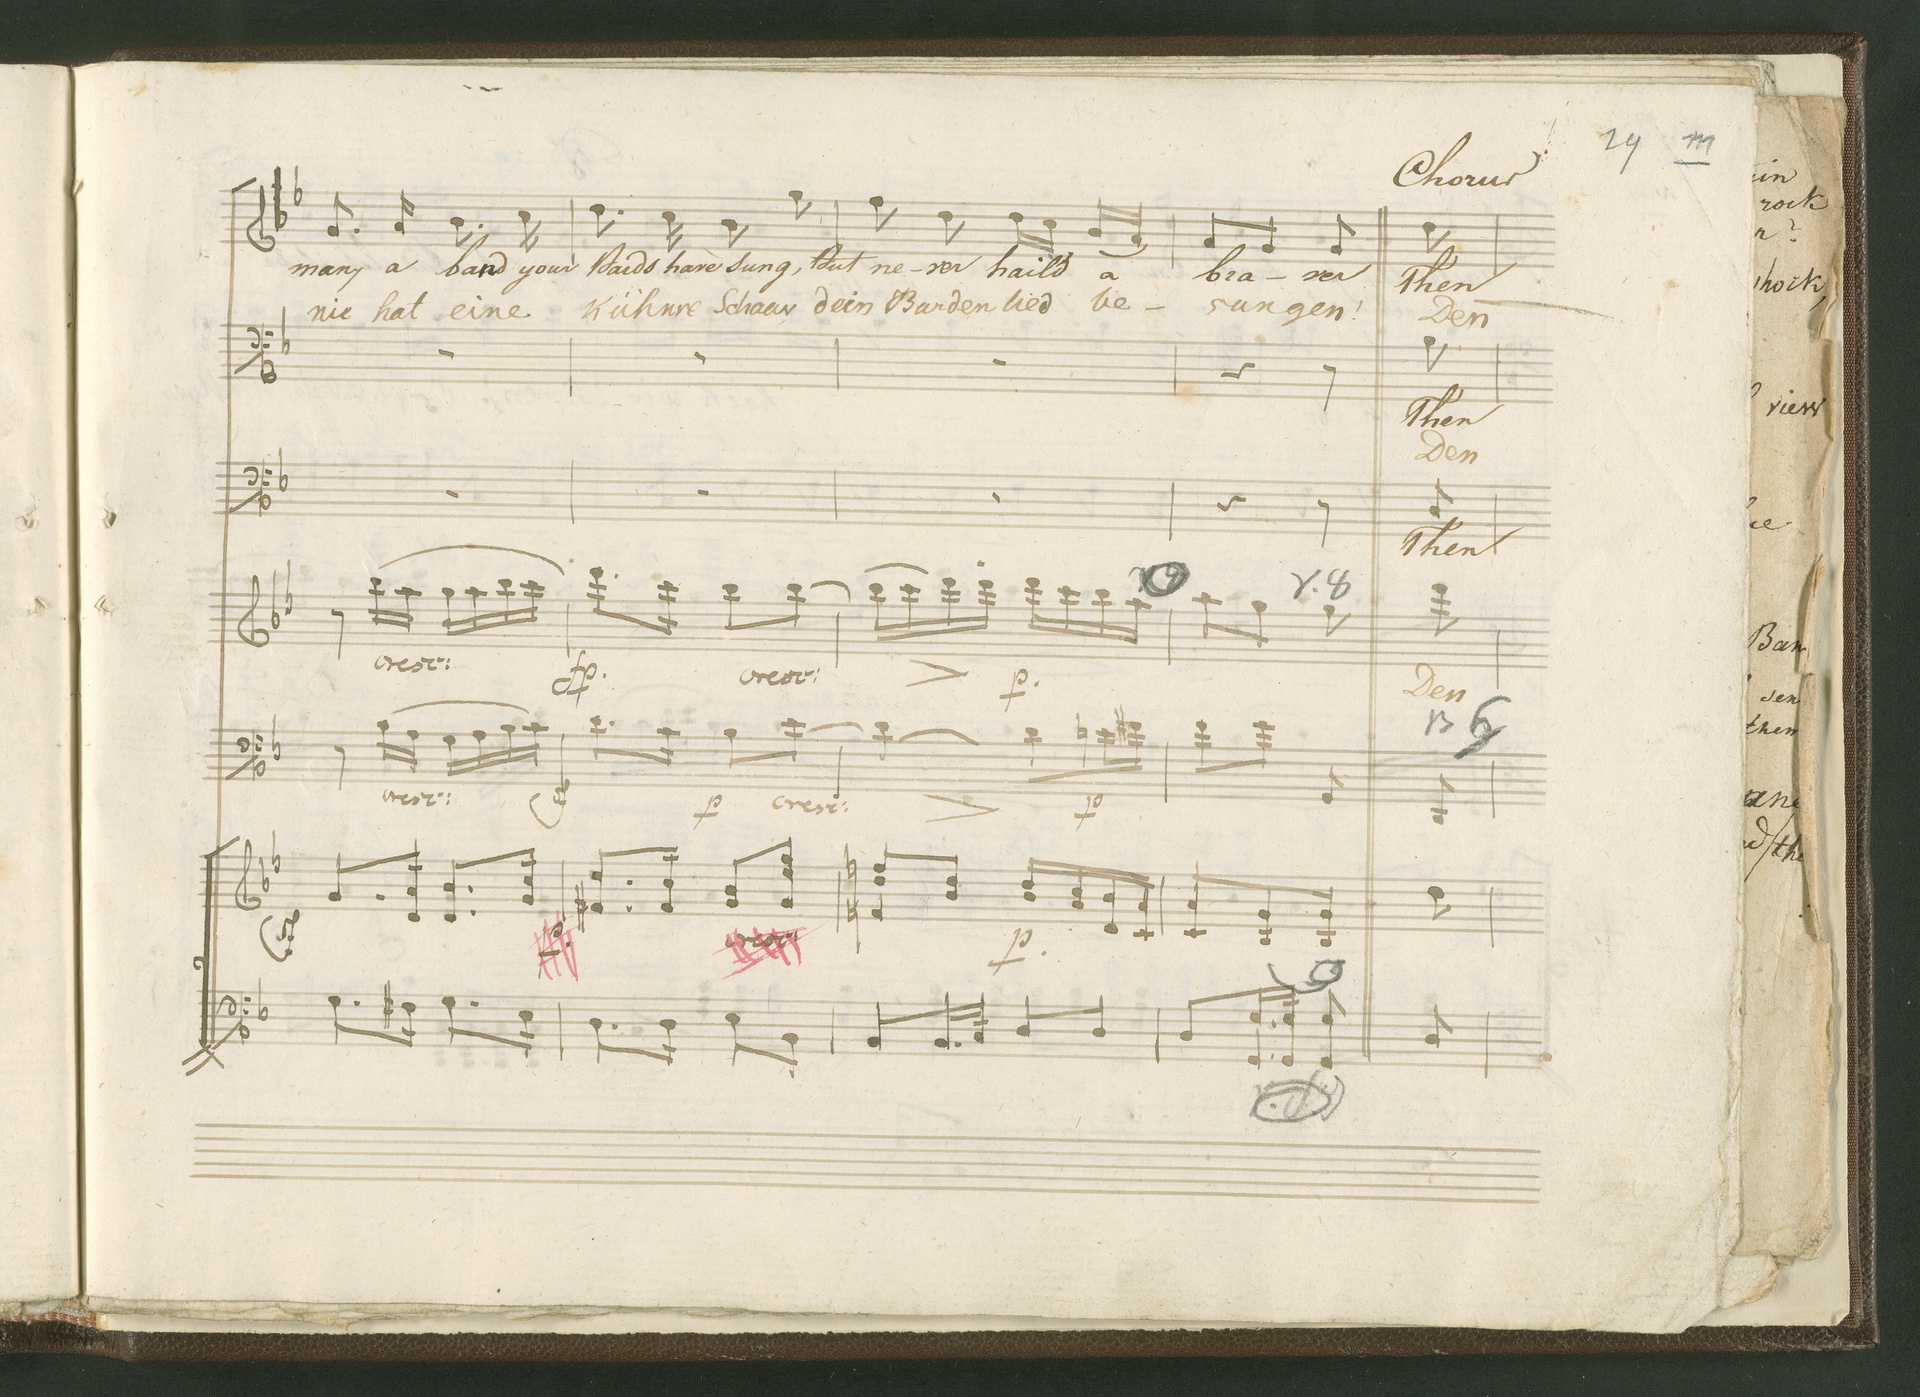 Chorus
29 m
many a band your Bards have sung, But ne-ver hail'd a bra-ver Then
nie hat eine kühnre Schaar dein Bardenlied be- sungen! Den
Then
Den
Then
cresc: fp. cresc: p.
Den
cresc: p cresc: p
p. cresc: p.
in
rock
n?
shock,
view
Ban
sen
them